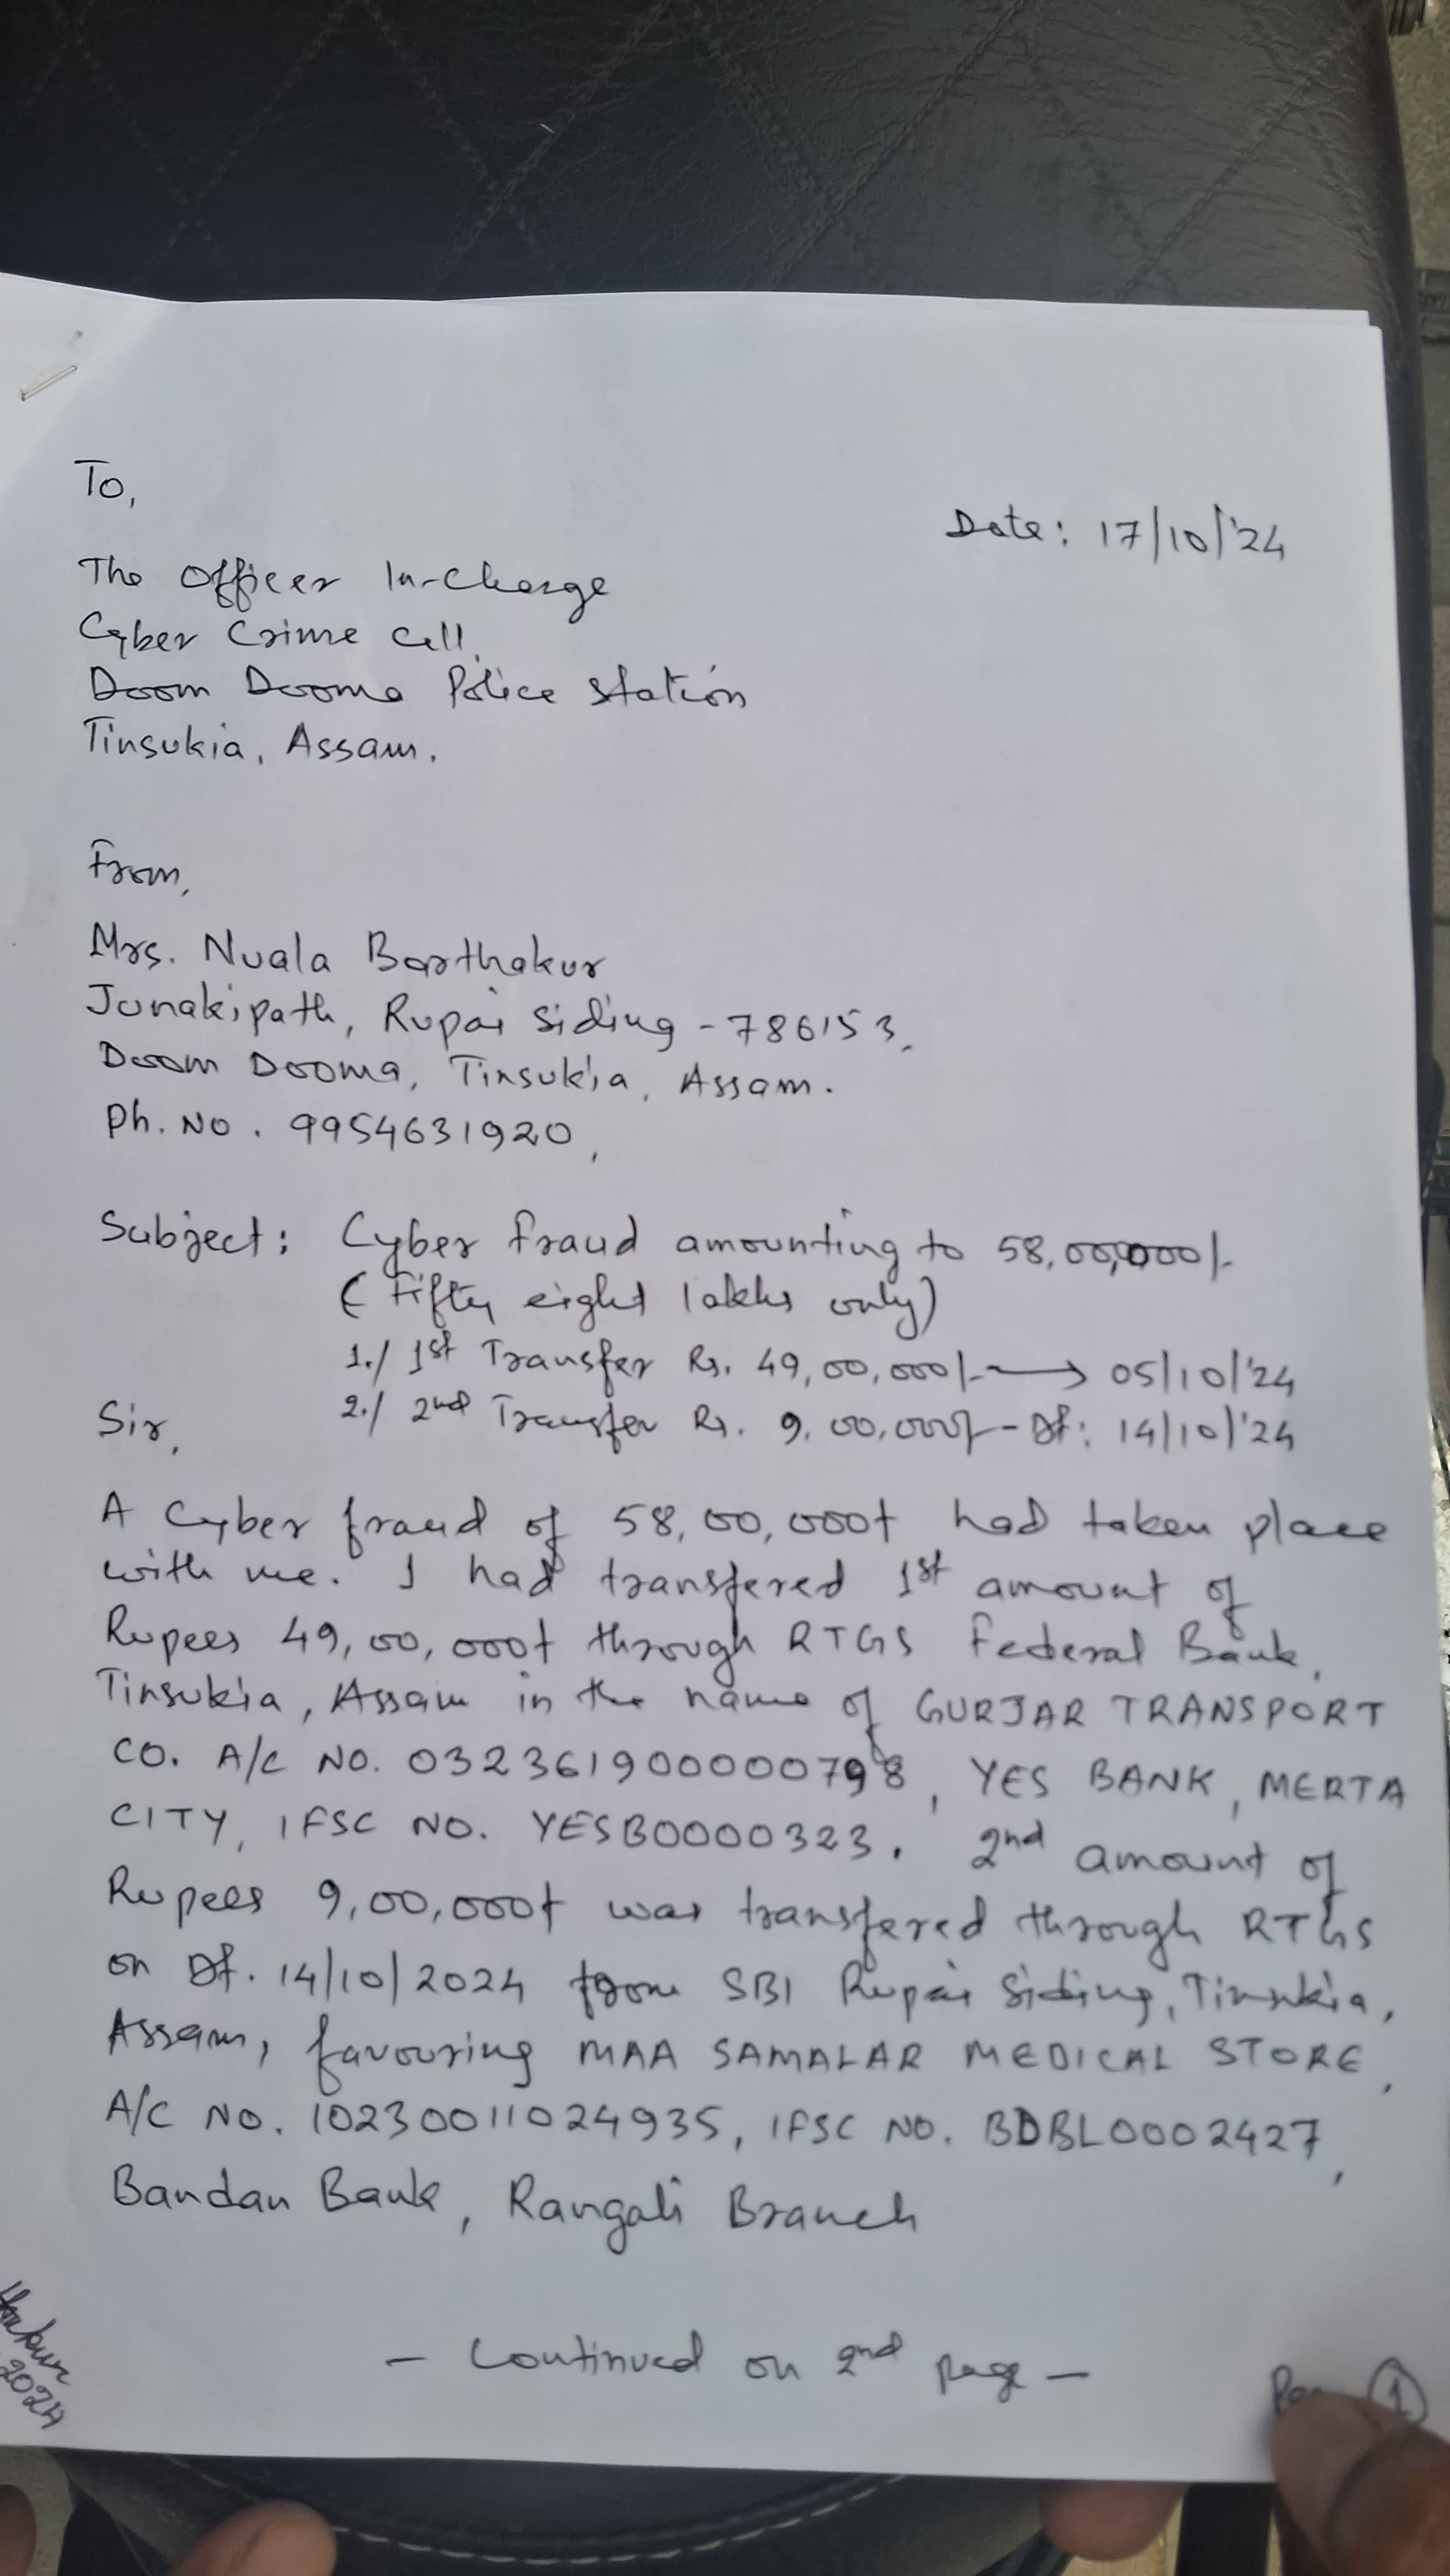 To,
Date: 17/10/'24
The Officer In-Charge
Cyber Crime Cell,
Doom Dooma Police Station
Tinsukia, Assam.
From,
Mrs. Nuala Barthakur
Junakipath, Rupai Siding - 786153,
Doom Dooma, Tinsukia, Assam.
Ph. No. 9954631920,
Subject: Cyber fraud amounting to 58,00,000/-
(Fifty eight lakhs only)
1./ 1st Transfer Rs. 49,00,000/- → 05/10/'24
2./ 2nd Transfer Rs. 9,00,000/- Dt: 14/10/'24
Sir,
A Cyber fraud of 58,00,000/- had taken place
with me. I had transfered 1st amount of
Rupees 49,00,000/- through RTGS Federal Bank,
Tinsukia, Assam in the name of GURJAR TRANSPORT
CO. A/C NO. 032361900000798, YES BANK, MERTA
CITY, IFSC NO. YESB0000323. 2nd amount of
Rupees 9,00,000/- was transfered through RTGS
on Dt. 14/10/2024 from SBI Rupai Siding, Tinsukia,
Assam, favouring MAA SAMALAR MEDICAL STORE,
A/C NO. 10230011024935, IFSC NO. BDBL0002427,
Bandan Bank, Rangali Branch
- Continued on 2nd page -
1
2024